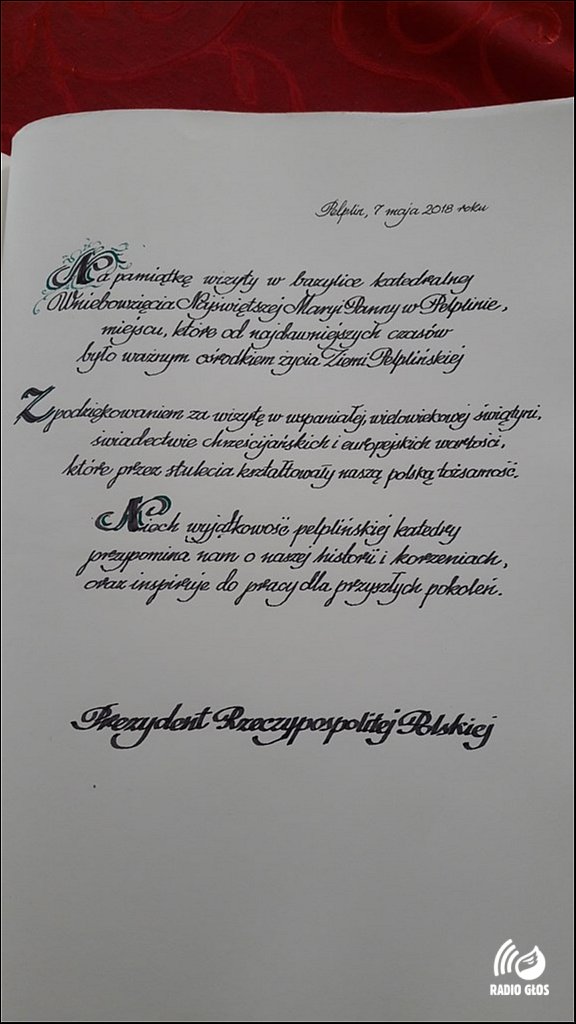 Pelplin, 7 maja 2018 roku
Na pamiątkę wizyty w bazylice katedralnej
Wniebowzięcia Najświętszej Maryi Panny w Pelplinie,
miejscu, które od najdawniejszych czasów
było ważnym ośrodkiem życia Ziemi Pelplińskiej
Z podziękowaniem za wizytę w wspaniałej, wielowiekowej świątyni,
świadectwie chrześcijańskich i europejskich wartości,
które przez stulecia kształtowały naszą polską tożsamość.
Niech wyjątkowość pelplińskiej katedry
przypomina nam o naszej historii i korzeniach,
oraz inspiruje do pracy dla przyszłych pokoleń.
Prezydent Rzeczypospolitej Polskiej
RADIO GŁOS